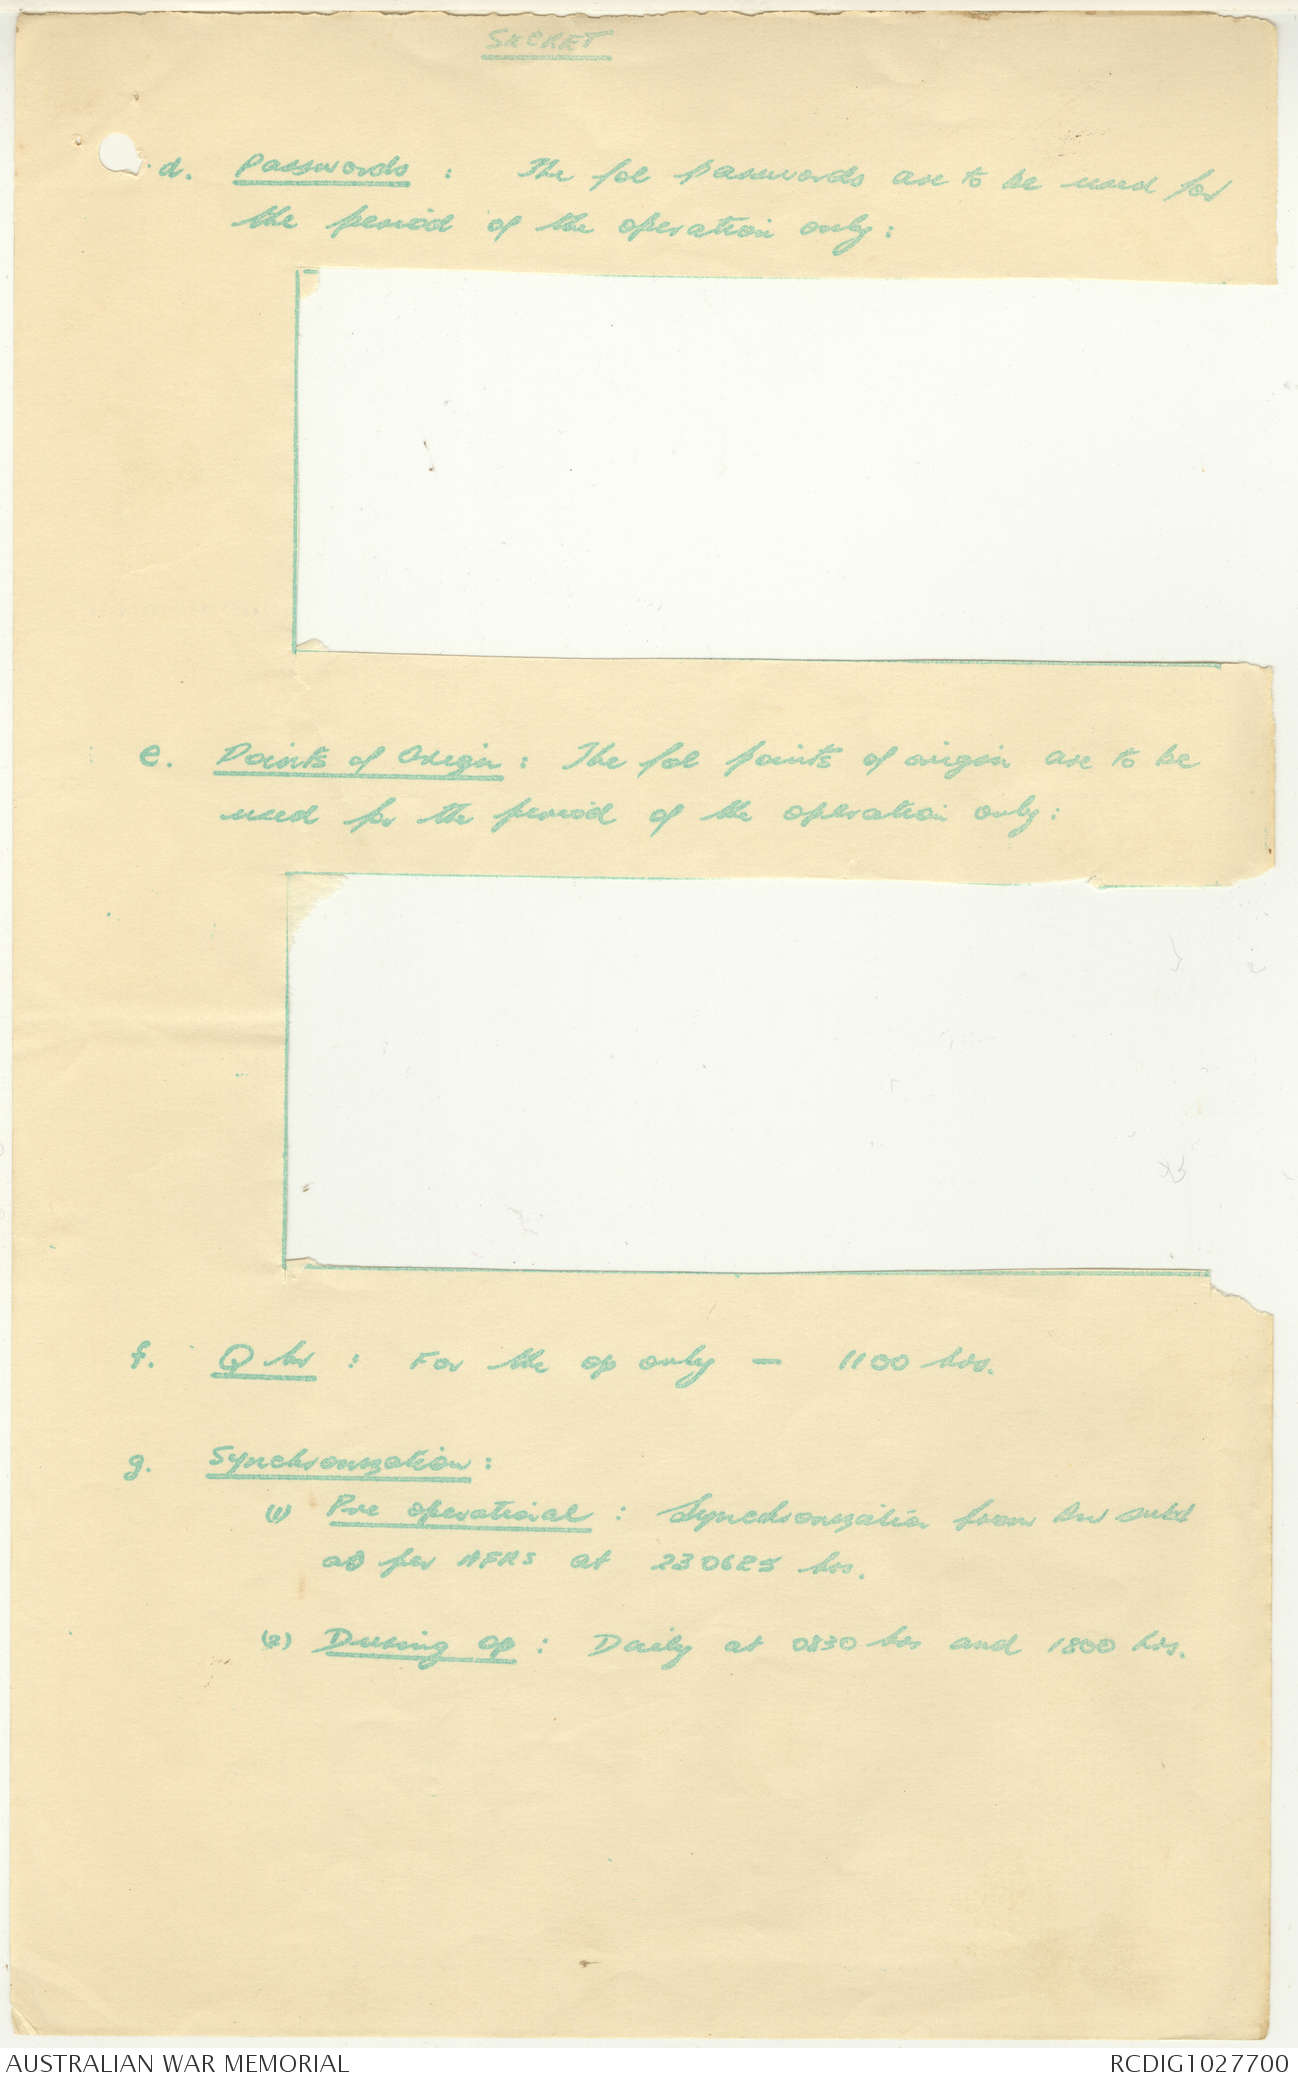 SECRET
d. Passwords : The fol passwords are to be used for
the period of the operation only:
e. Points of Origin : The fol points of origin are to be
used for the period of the operation only:
f. Q hr : For the op only - 1100 hrs.
g. Synchronization :
(1) Pre operational : Synchronization from
per AFRS at 230625 hrs.
(2) During Op : Daily at 0830 hrs and 1800 hrs.
AUSTRALIAN WAR MEMORIAL
RCDIG1027700